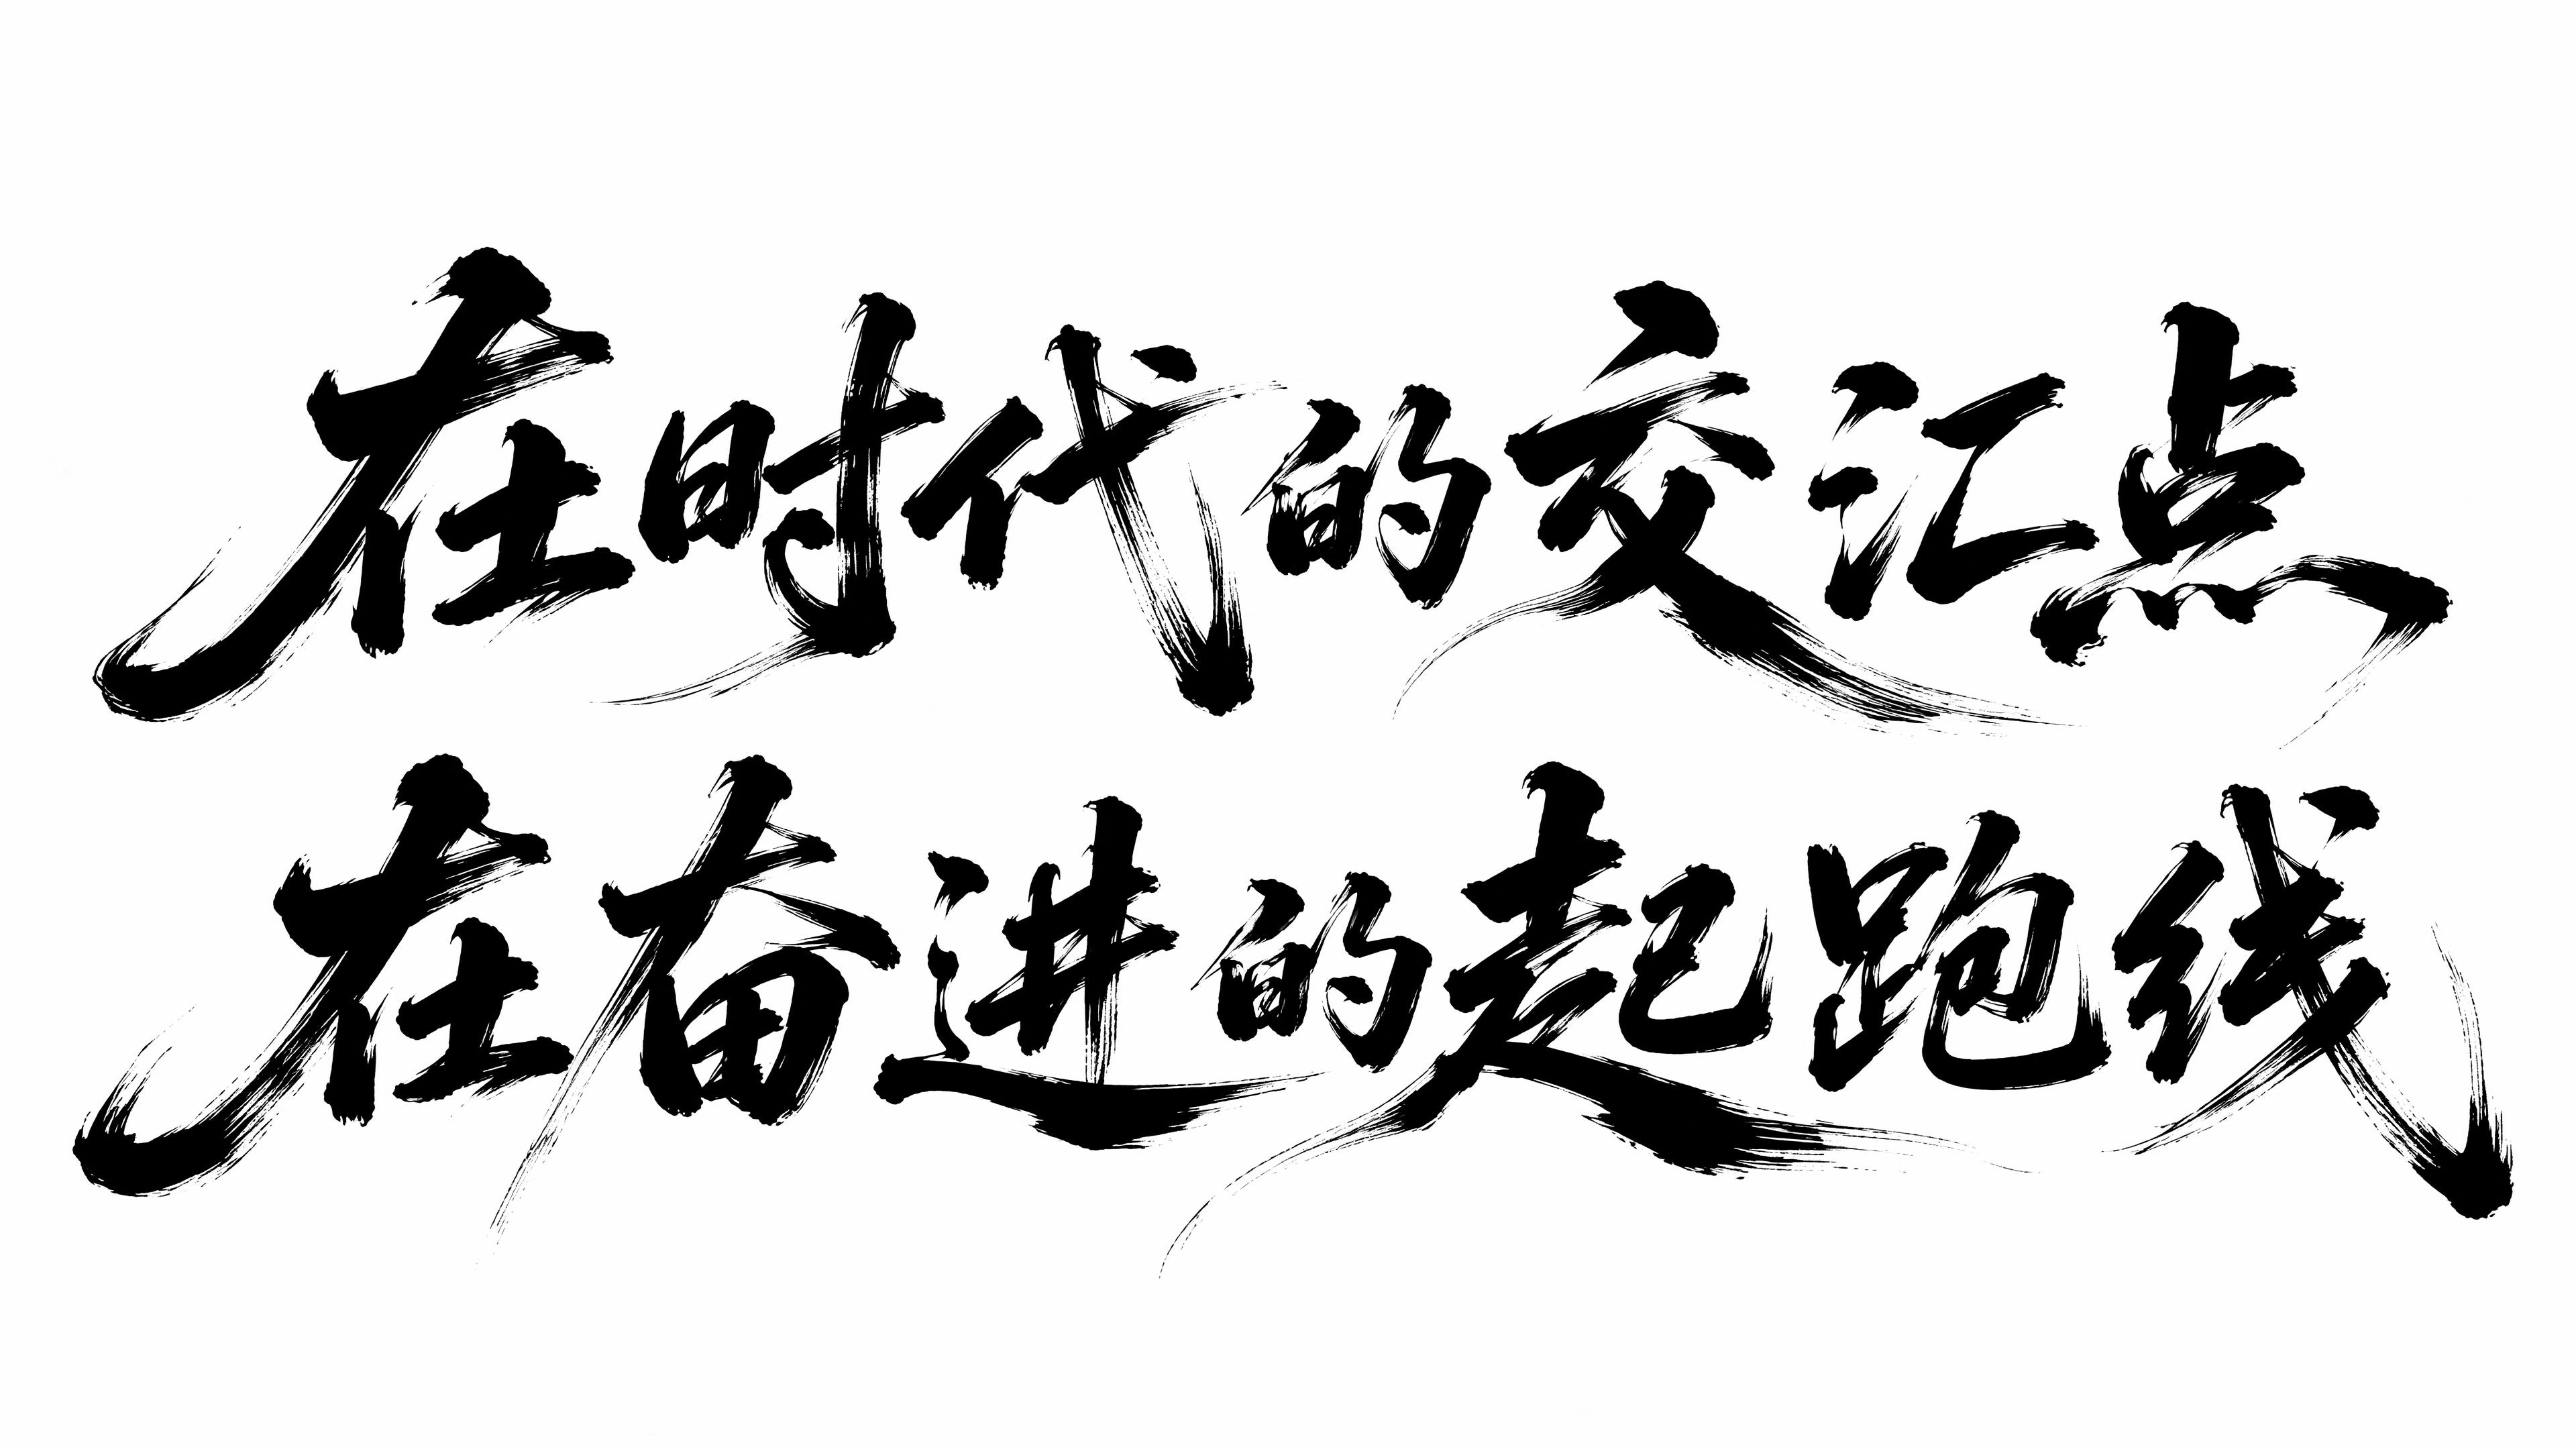 在时代的交汇点
在奋进的起跑线